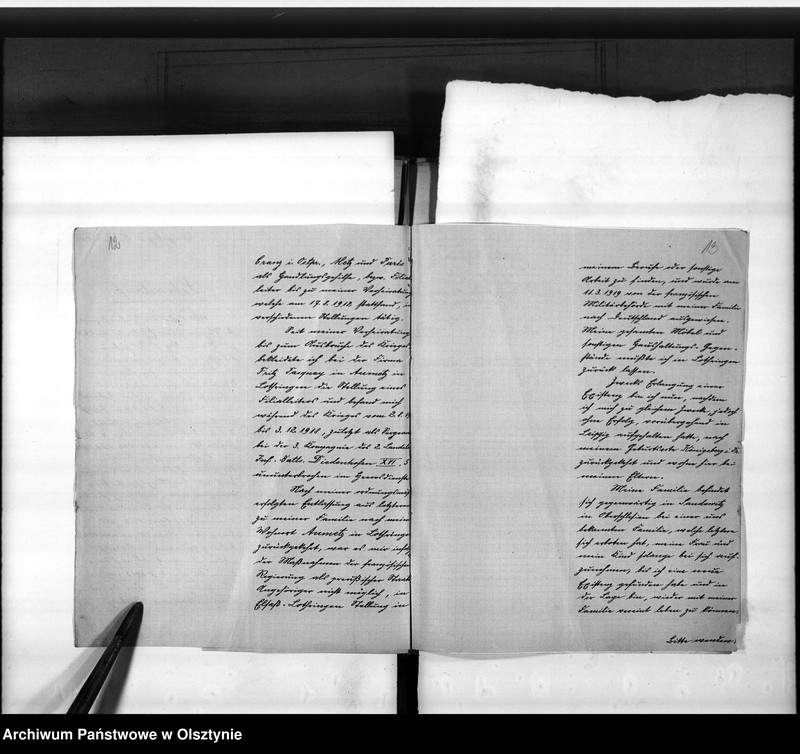 12
Cranz i. Ostpr., Metz und Paris
als Handlungsgehilfe, bezw. Filial
leiter bis zu meiner Verheiratung
welche am 17.2.1912 stattfand, in
verschiedenen Stellungen tätig.
Seit meiner Verheiratung
bis zum Ausbruche des Krieges
bekleidete ich bei der Firma
Fritz in Aumetz in
Lothringen die Stellung eines
Filialleiters und befand mich
während des Krieges vom 2.8.
bis 3.12.1918, zuletzt als
bei der 3. Kompagnie des 2. Landst.
Inf. Batls. Diedenhofen XVI.
ununterbrochen im Heeresdienste
Nach meiner ordnungsmäß
erfolgten Entlassung aus letzterem
zu meiner Familie nach meinem
Wohnort Aumetz in Lothringen
zurückgekehrt, war es mir infolge
der Maßnahmen der französischen
Regierung als preußischer Staats
Angehöriger nicht möglich, in
Elsaß-Lothringen Stellung in
13
meinem Berufe oder sonstige
Arbeit zu finden, und wurde am
11.3.1919 von der französischen
Militärbehörde mit meiner Familie
nach Deutschland ausgewiesen.
Meine gesamten Möbel und
sonstigen Haushaltungs-Gegen-
stände mußte ich in Lothringen
zurück lassen.
Zwecks Erlangung einer
Existenz bin ich nun, nachdem
ich mich zu gleichem Zweck, jedoch
ohne Erfolg, vorübergehend in
Leipzig aufgehalten hatte, nach
meinem Geburtsorte Königsberg i. Pr.
zurückgekehrt und wohne hier bei
meinen Eltern.
Meine Familie befindet
sich gegenwärtig in
in Oberschlesien bei einer uns
bekannten Familie, welche letztere
sich erboten hat, meine Frau und
mein Kind solange bei sich auf-
zunehmen, bis ich eine neue
Existenz gefunden habe und in
der Lage bin, wieder mit meiner
Familie vereint leben zu können.
Bitte wenden.
Archiwum Państwowe w Olsztynie